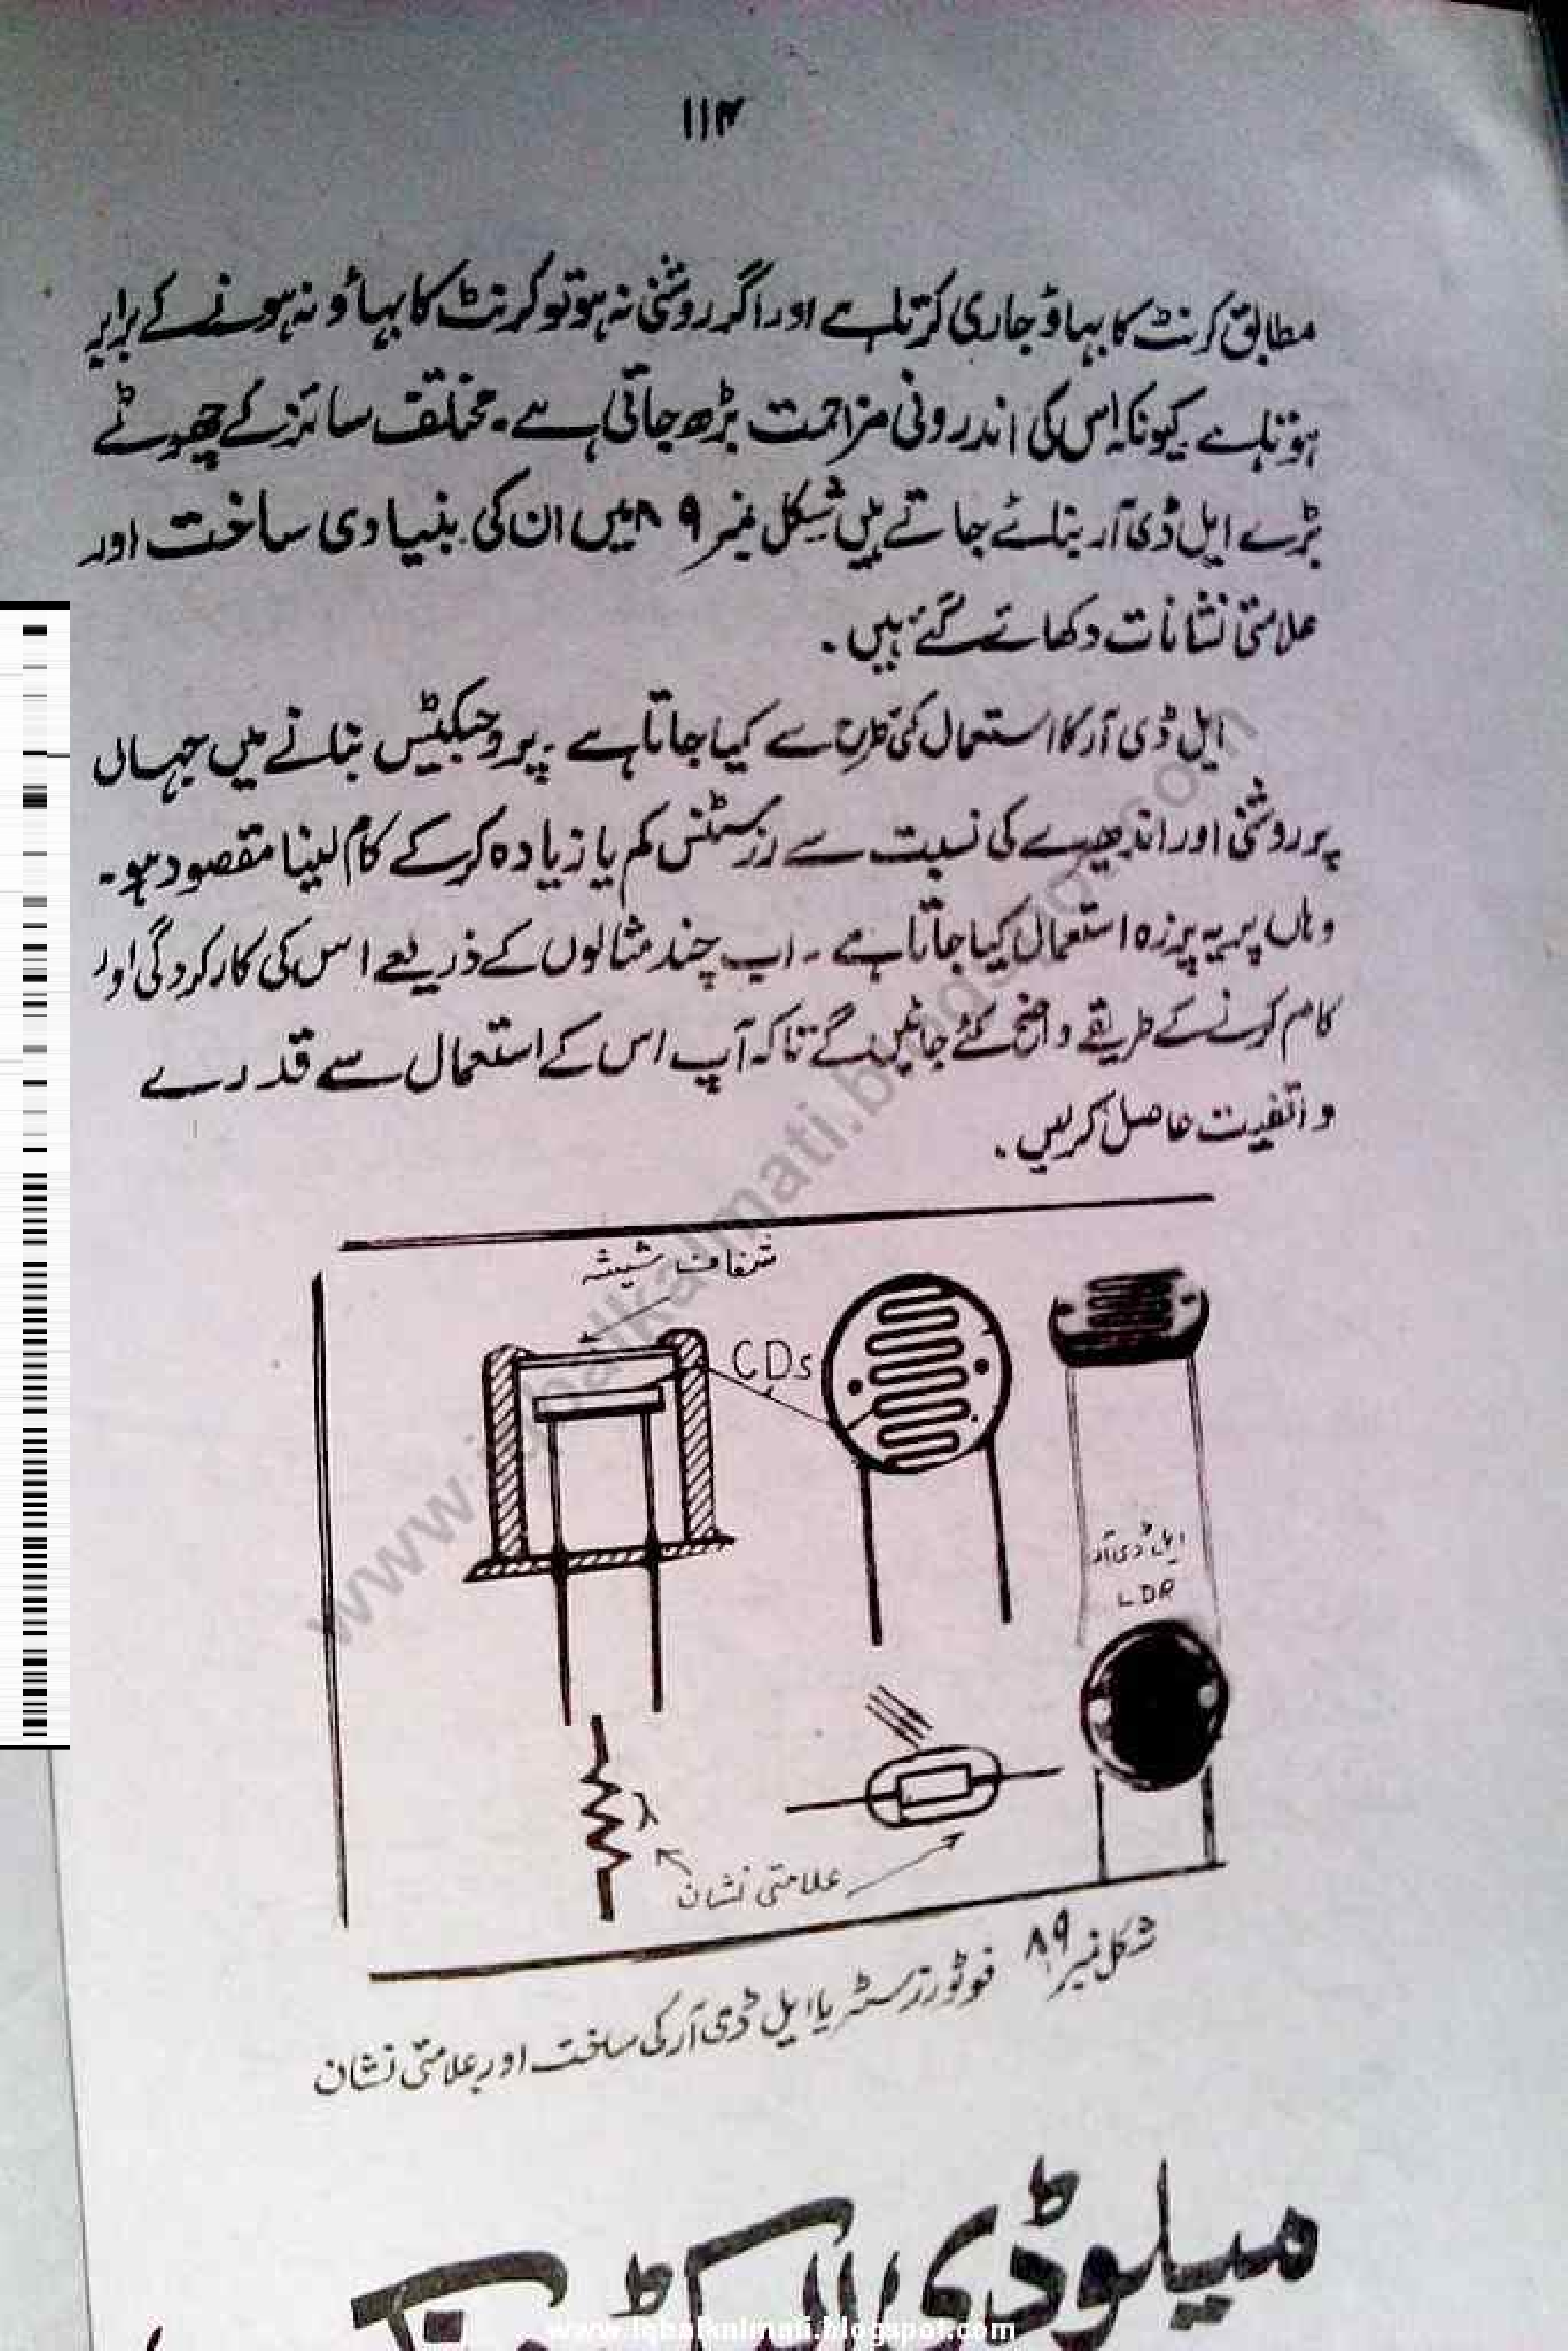 ۱۱۴
مطابق کرنٹ کا بہاؤ جاری کرتا ہے اور اگر روشنی نہ ہو تو کرنٹ کا بہاؤ نہ ہونے کے برابر
ہوتا ہے کیونکہ اس کی اندرونی مزاحمت بڑھ جاتی ہے۔ مختلف سائز کے چھوٹے
بڑے ایل ڈی آر بنائے جاتے ہیں شکل نمبر ۸۹ میں ان کی بنیادی ساخت اور
علامتی نشانات دکھائے گئے ہیں۔
ایل ڈی آر کا استعمال کئی طرح سے کیا جاتا ہے۔ پروجیکٹس بنانے میں جہاں
پر روشنی اور اندھیرے کی نسبت سے رزسٹنس کم یا زیادہ کر کے کام لینا مقصود ہو۔
وہاں پر یہ پرزہ استعمال کیا جاتا ہے۔ اب چند مثالوں کے ذریعے اس کی کارکردگی اور
کام کرنے کے طریقے واضح کئے جائیں گے تاکہ آپ اس کے استعمال سے قدرے
واقفیت حاصل کریں۔
شفاف شیشہ
CDs
ایل ڈی آر
LDR
علامتی نشان
شکل نمبر ۸۹ فوٹو رزسٹر یا ایل ڈی آر کی ساخت اور علامتی نشان
میلوڈی
www.iqbalkalmati.blogspot.com